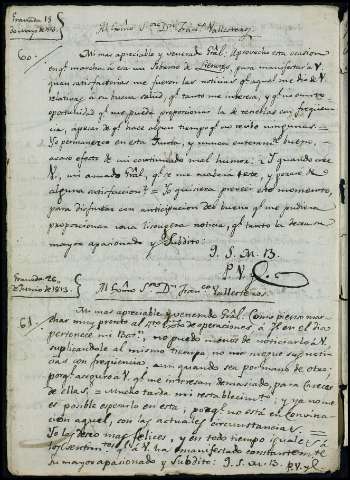 Granada 18
de Mayo de 1813.
Al Exmo. Sor. Dn. Fran.co Vallesteros
60.
Mi mas apreciable y venerado Gral. Aprovecho esta ocasion
en q.e marcha á esa un Interno de Viveres, para manifestar á V.
quan satisfactorias me fueron las noticias q.e aquel me dió de V.
relativas á su buena salud, q.e tanto me interesa, y q.l no
oportunidad q.e me pueda proporcionar la de tenerlas con freqüen-
cia, apesar de q.e hace algun tiempo q.e no recibo ningunas. =
Yo permanezco en esta Junta, y nunca enteram.te bueno,
acaso efecto de mi continuado mal humor: ¿Y quando cree
V., mi amado Gral. q.e se me acabará este, y pueda
alguna satisfaccion? = Yo quisiera preveer este momento,
para disfrutar con anticipacion del bueno q.e me pudiera
proporcionar una lisongera noticia, q.e tanto la desea su
mayor apasionado y subdito:
J. S. M. B.
P. V.
Granada 26
de Junio de 1813.
Al Exmo. Sor. Dn. Fran.co Vallesteros.
61.
Mi mas apreciable y venerado Gral. Como pienso mar-
char muy pronto al Exto. de operaciones, á q.e en el dia
pertenece mi Bat.n, no puedo menos de noticiarlo á V.
suplicandole al mismo tiempo, no me niegue sus noti-
cias con freqüencia, aun quando sea por mano de otro;
porq.e aseguro á V. q.e me interesan demasiado, para carecer
de ellas, á mucho tarda mi restablecim.to, y ya no me
es posible esperarlo en esta; porq.e no está en convina-
cion aquel, con las actuales circunstancias. =
Yo los deseo mas felices, y en todo tiempo iguales á
los sentim.tos q.e á V. ha manifestado constantem.te
su mayor apasionado y subdito: J. S. M. B. P. V.